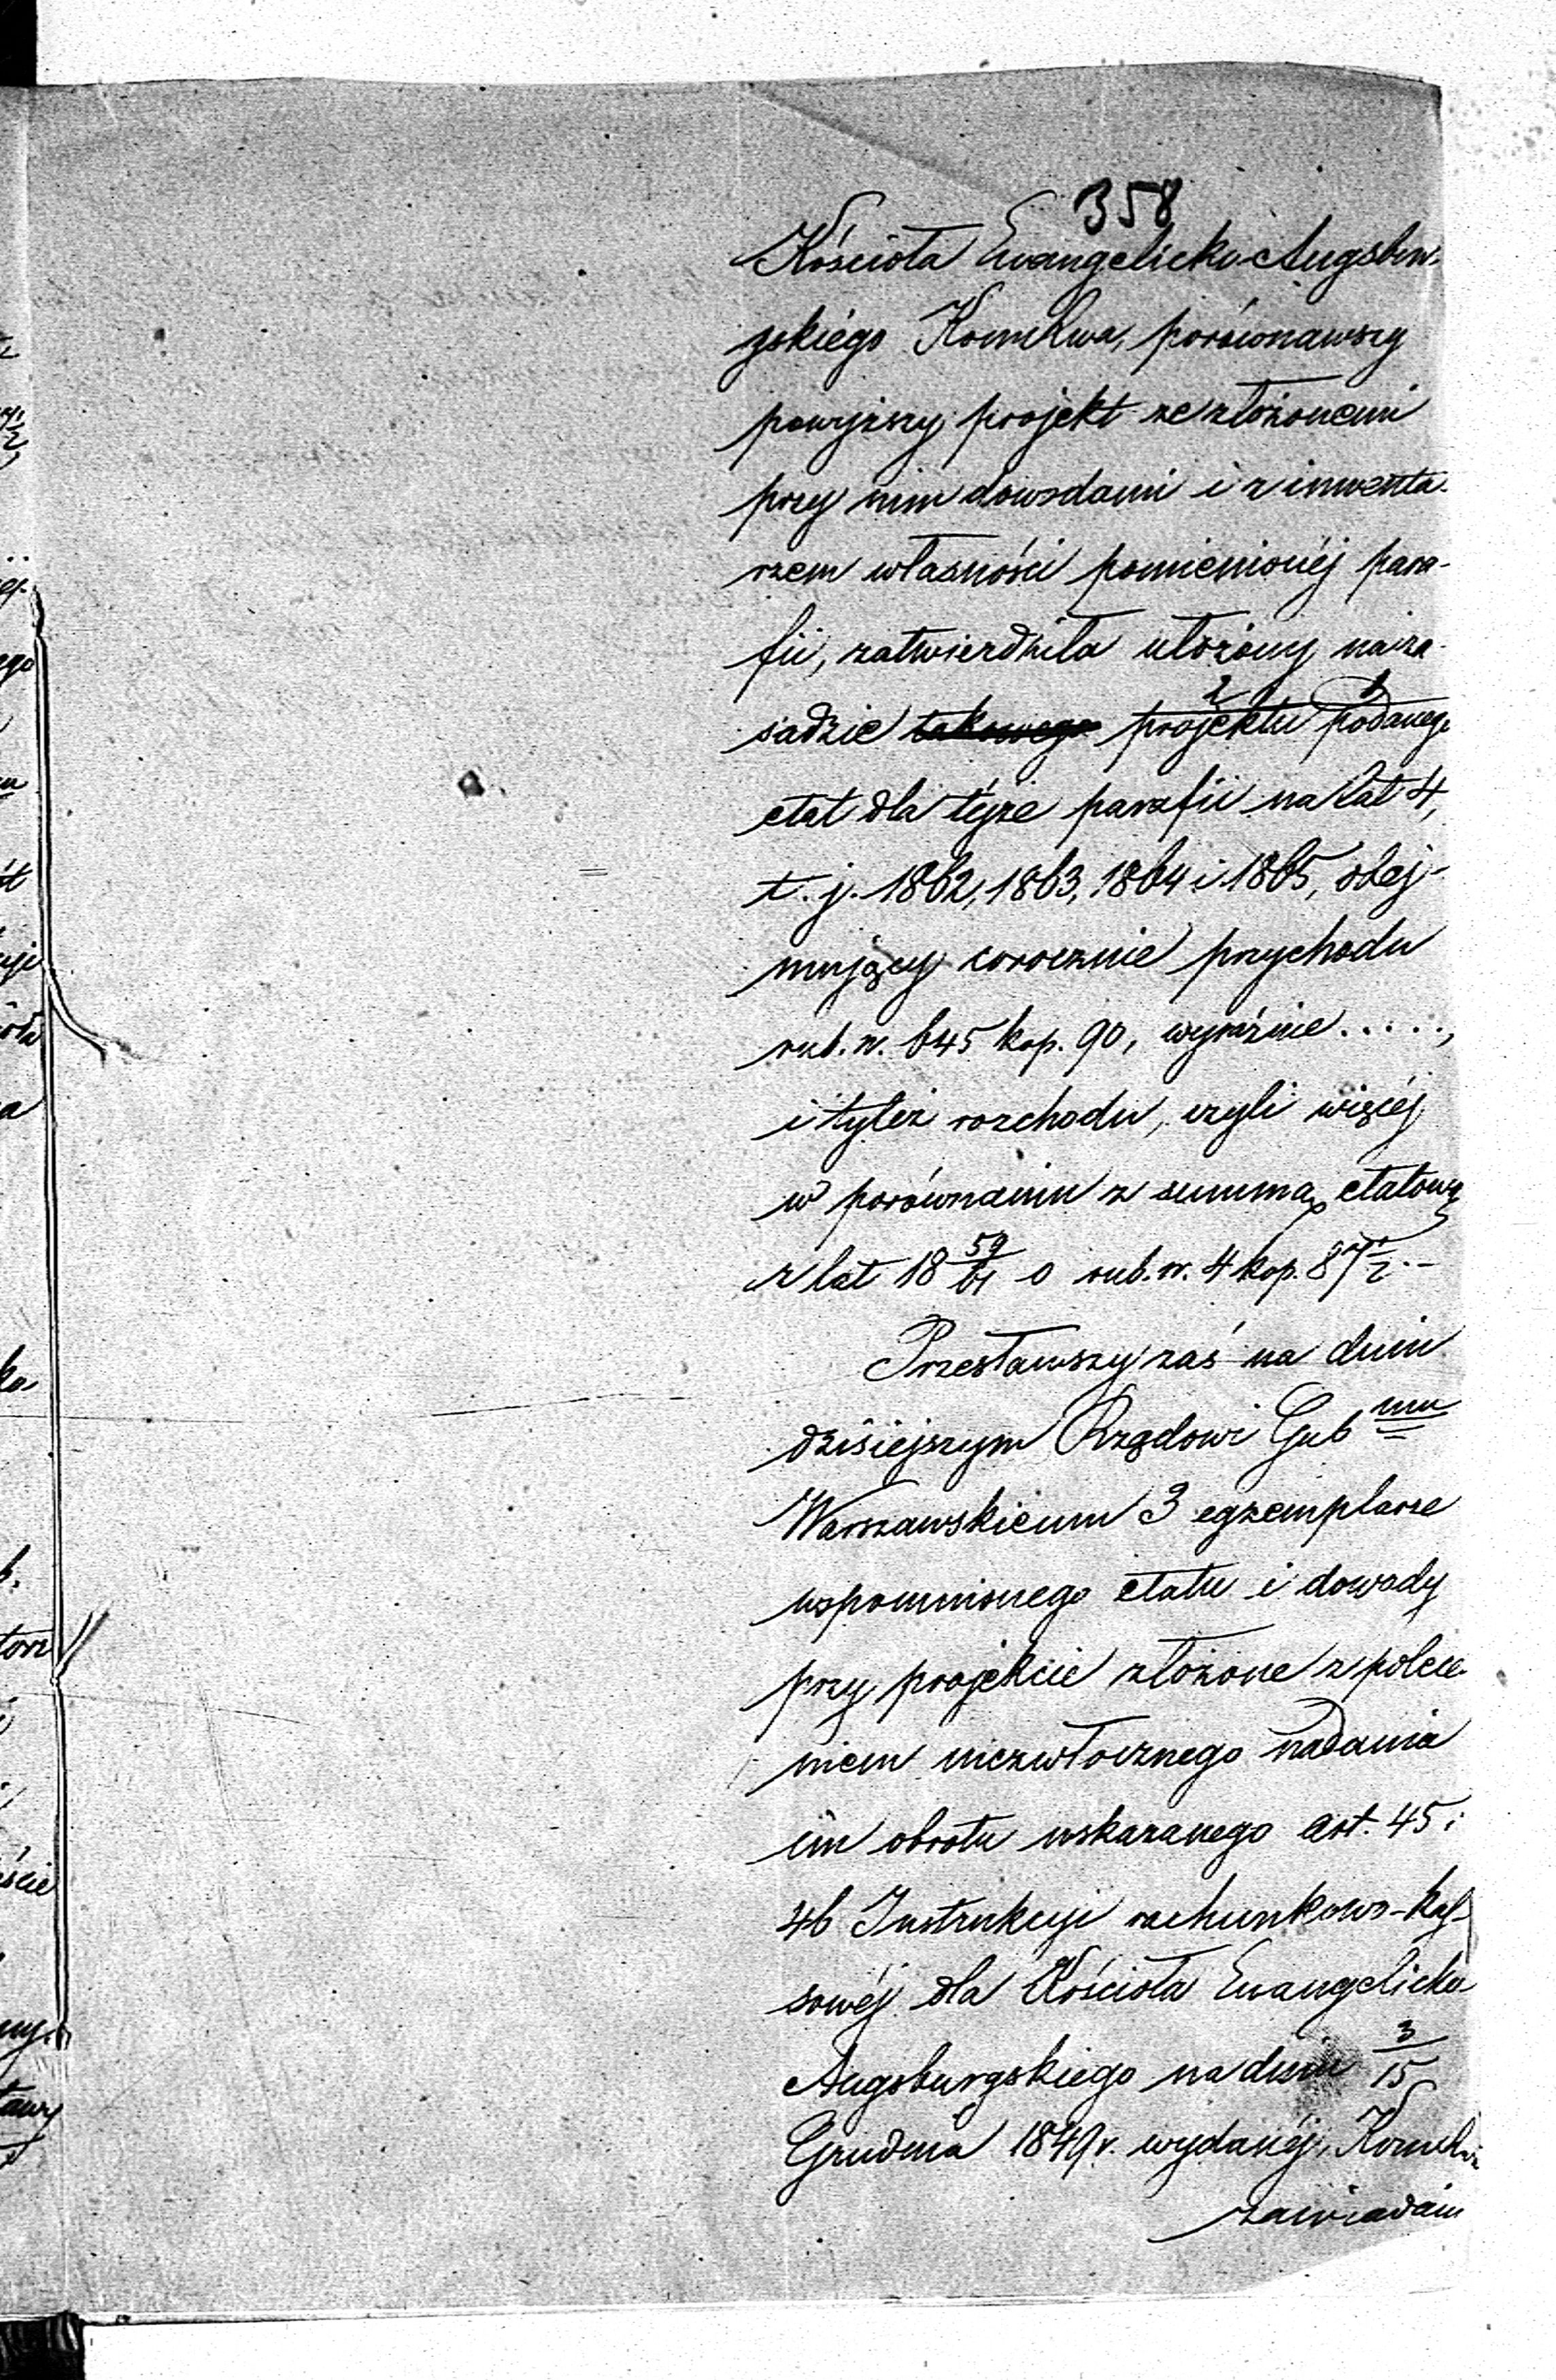 358
Kościoła Ewangelicko-Augsbur-
gskiego Kommissya, porównawszy
powyższy projekt ze złożonemi
przy nim dowodami i z inwenta-
rzem własności pomienionéj para-
fii, zatwierdziła ułożony na za-
sadzie takowego projektu podanego
2 1
etat dla téjże parafii na lat 4,
t. j. 1862, 1863, 1864 i 1865, obej-
mujący corocznie przychodu
rub. sr. 645 kop. 90, wyraźnie . . . . . ,
i tyleż rozchodu, czyli więcéj
w porównaniu z summą etatową
z lat 18 59/61 o rub. sr. 4 kop. 87 1/2. –
Przesławszy zaś na dniu
dzisiejszym Rządowi Gub mu
Warszawskiemu 3 egzemplarze
wspomnionego etatu i dowody
przy projekcie złożone z polece-
niem niezwłocznego nadania
im obrotu wskazanego art. 45 i
46 Instrukcyi rachunkowo-kas-
sowéj dla Kościoła Ewangelicko-
Augsburgskiego na dniu 3/15
Grudnia 1849 r. wydanéj,
zawiadam